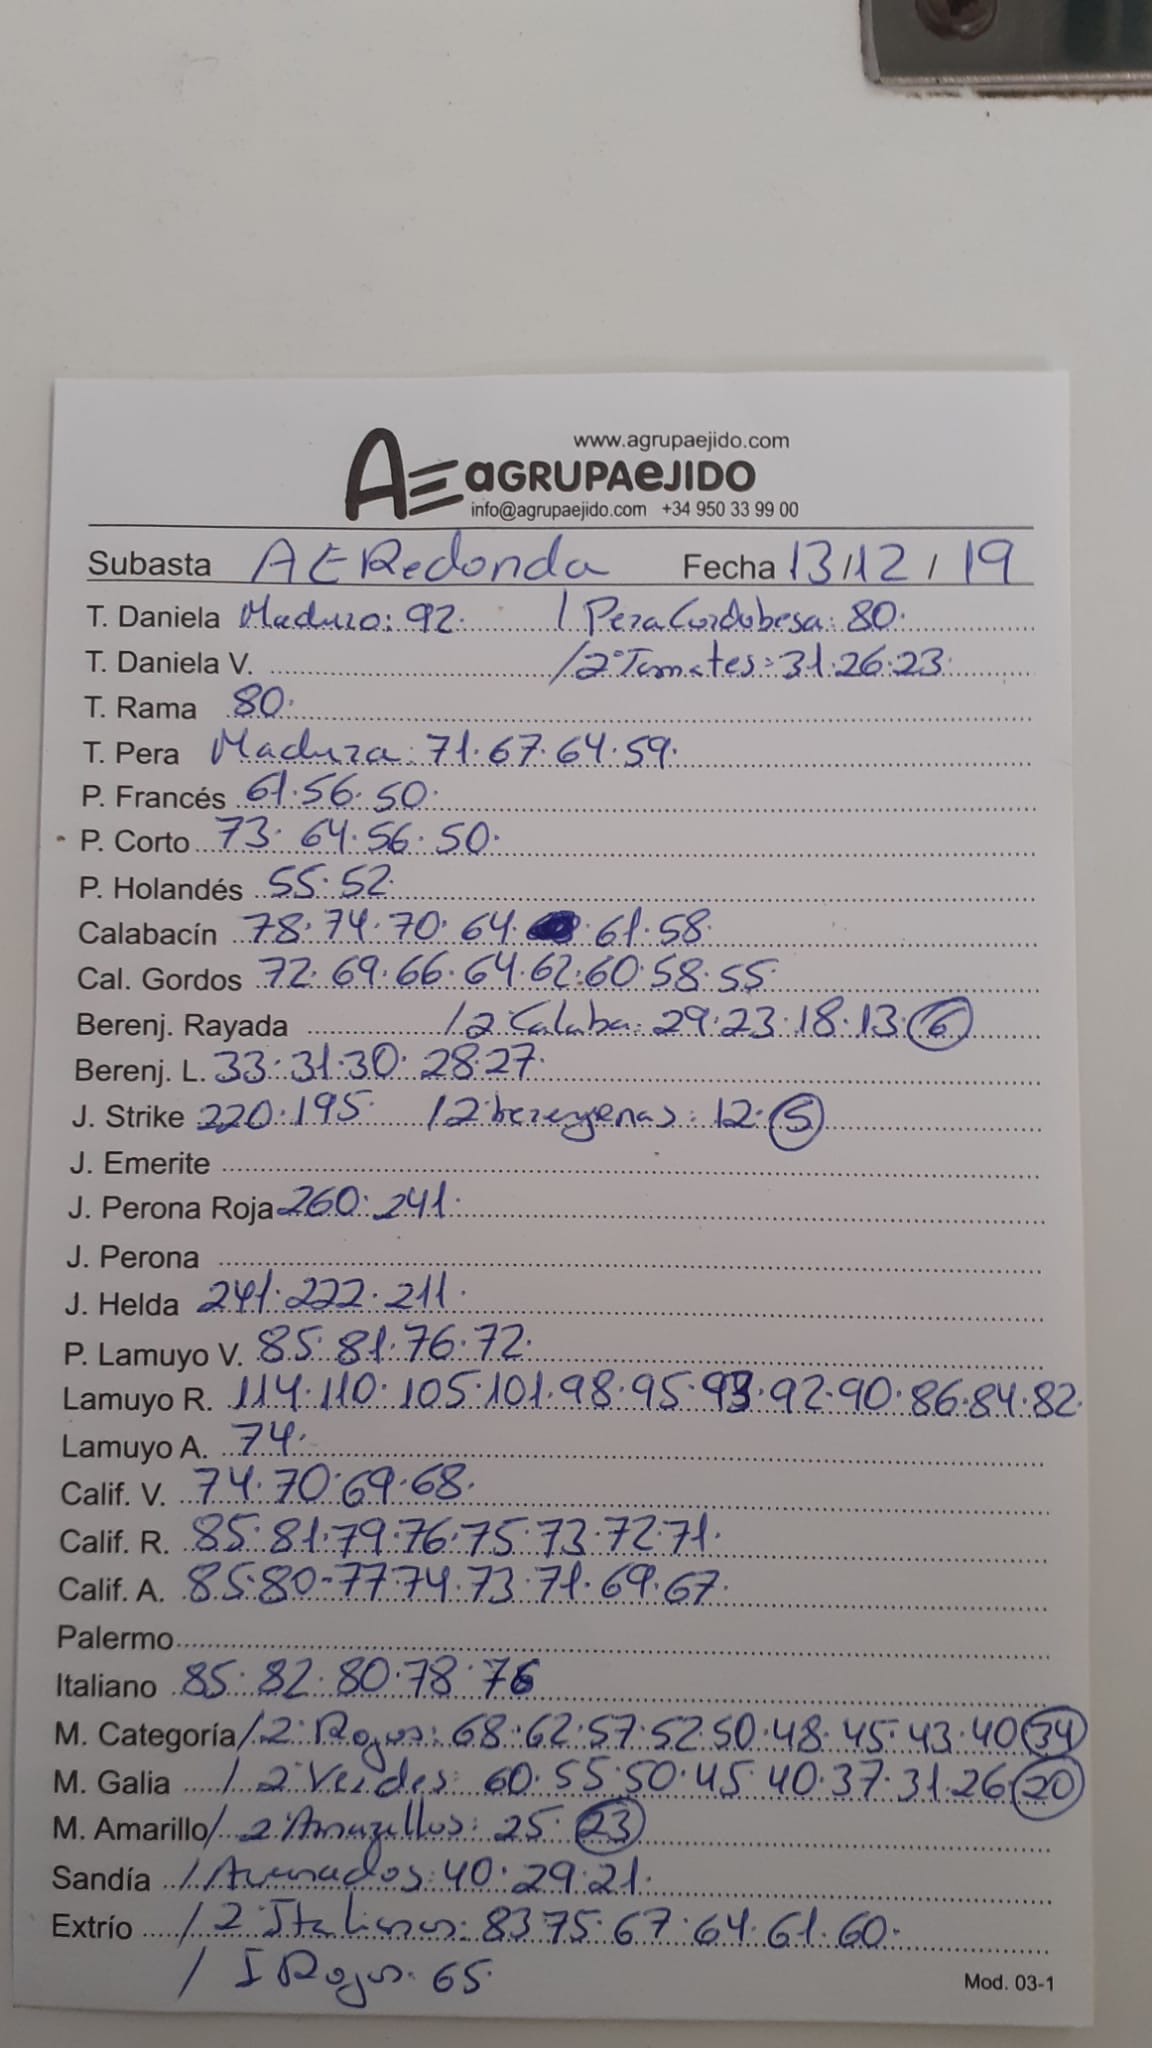 www.agrupaejido.com
AE aGRUPAeJIDO
info@agrupaejido.com +34 950 33 99 00
Subasta AE Redonda Fecha 13/12/19
T. Daniela Maduro: 92. / Pera Cordobesa: 80.
T. Daniela V. / 2ª Tomates: 31.26.23.
T. Rama 80.
T. Pera Madura: 71.67.64.59.
P. Francés 61.56.50.
P. Corto 73.64.56.50.
P. Holandés 55.52.
Calabacín 78.74.70.64. .61.58.
Cal. Gordos 72.69.66.64.62.60.58.55.
Berenj. Rayada / 2ª Calaba: 29.23.18.13.6
Berenj. L. 33.31.30.28.27.
J. Strike 220.195. / 2ª berenjenas: 12.5
J. Emerite
J. Perona Roja 260.241.
J. Perona
J. Helda 241.222.211.
P. Lamuyo V. 85.81.76.72.
Lamuyo R. 114.110.105.101.98.95.93.92.90.86.84.82.
Lamuyo A. 74.
Calif. V. 74.70.69.68.
Calif. R. 85.81.79.76.75.73.72.71.
Calif. A. 85.80-77.74.73.71.69.67.
Palermo
Italiano 85.82.80.78.76
M. Categoría / 2ª Rojos: 68.62.57.52.50.48.45.43.40 34
M. Galia / 2ª Verdes: 60.55.50.45.40.37.31.26 20
M. Amarillo / 2ª Amarillos: 25.23
Sandía / Asurados: 40.29.21.
Extrío / 2ª Italianos: 83.75.67.64.61.60.
/ I Rojos: 65.
Mod. 03-1